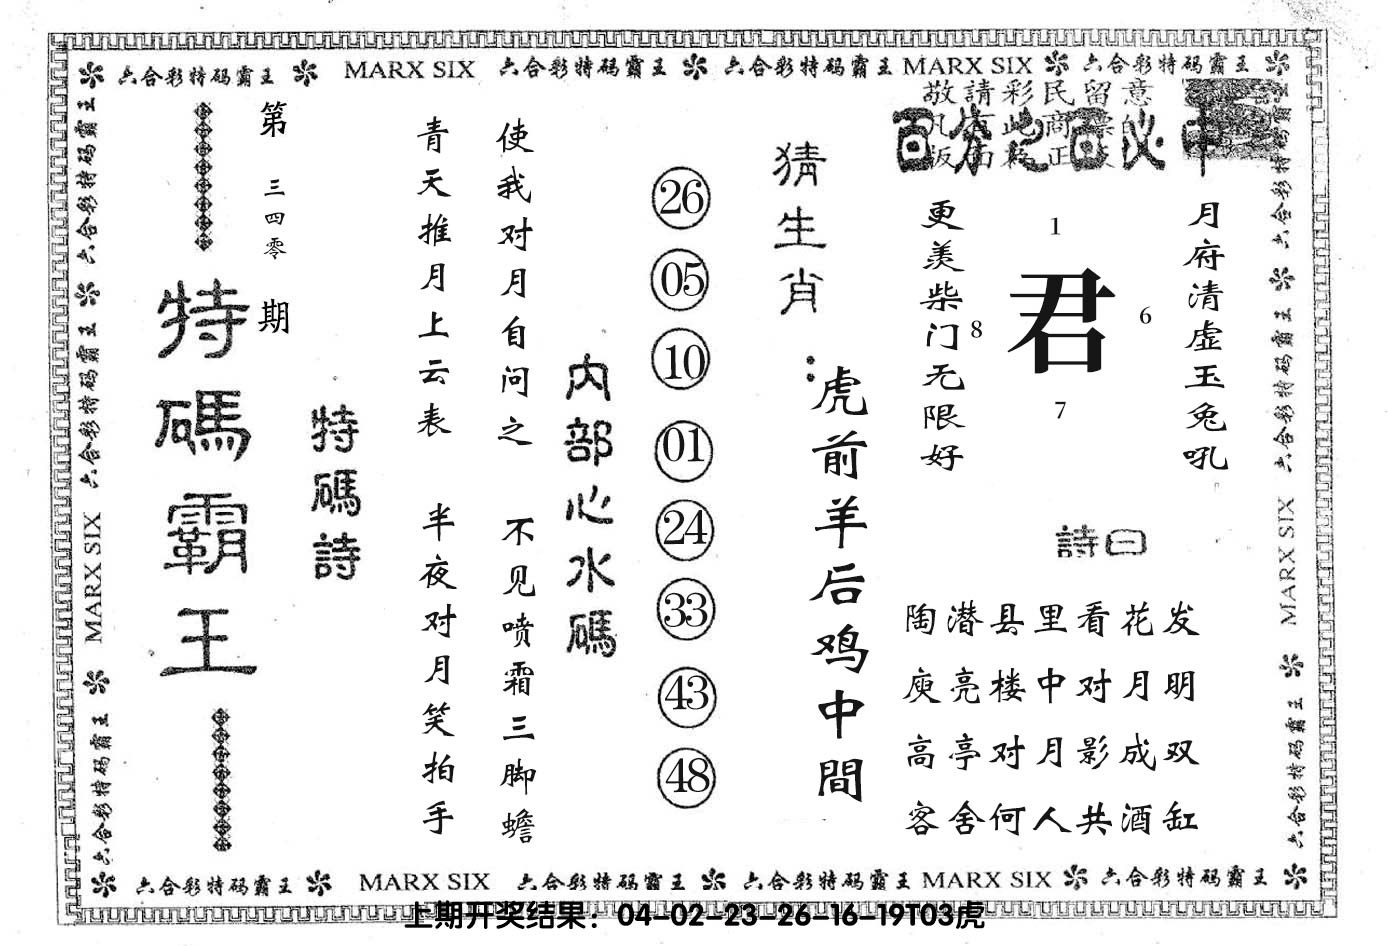 六合彩特码霸王 MARX SIX 六合彩特码霸王 六合彩特码霸王 MARX SIX 六合彩特码霸王
六合彩特码霸王 六合彩特码霸王 MARX SIX 六合彩特码霸王
第三四零期
特碼霸王
特碼詩
青天推月上云表 半夜对月笑拍手
使我对月自问之 不见喷霜三脚蟾
内部心水碼
26
05
10
01
24
33
43
48
猜生肖:
虎前羊后鸡中間
敬請彩民留意
更羡柴门无限好
1
8
君
6
7
月府清虚玉兔吼
詩曰
陶潜县里看花发
庾亮楼中对月明
高亭对月影成双
客舍何人共酒缸
六合彩特码霸王 六合彩特码霸王 MARX SIX 六合彩特码霸王
六合彩特码霸王 MARX SIX 六合彩特码霸王 六合彩特码霸王 MARX SIX 六合彩特码霸王
上期开奖结果：04-02-23-26-16-19T03虎